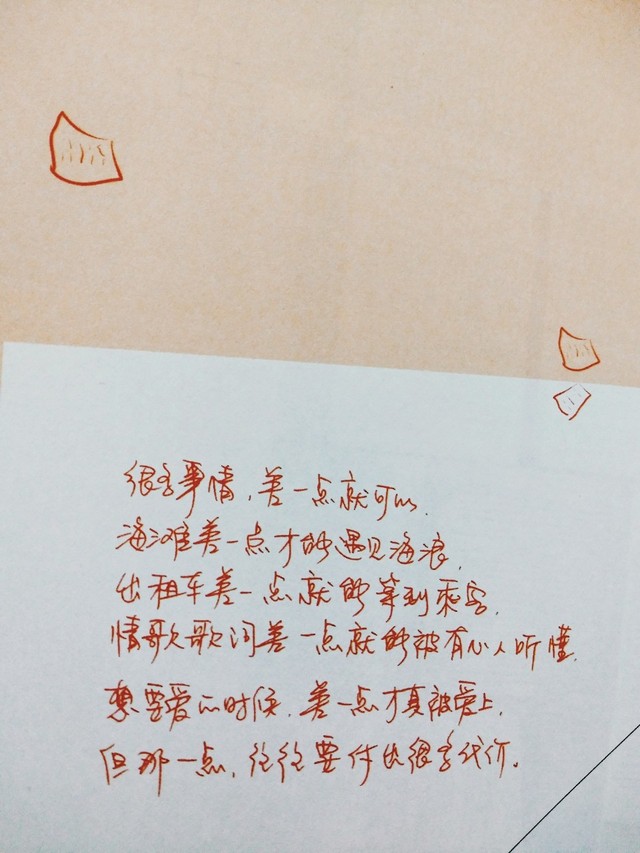 很多事情，差一点就可以，
海滩差一点才能遇见海浪，
出租车差一点就能等到乘客，
情歌歌词差一点就能被有心人听懂，
想要爱的时候，差一点才真被爱上，
但那一点，往往要付出很多代价。